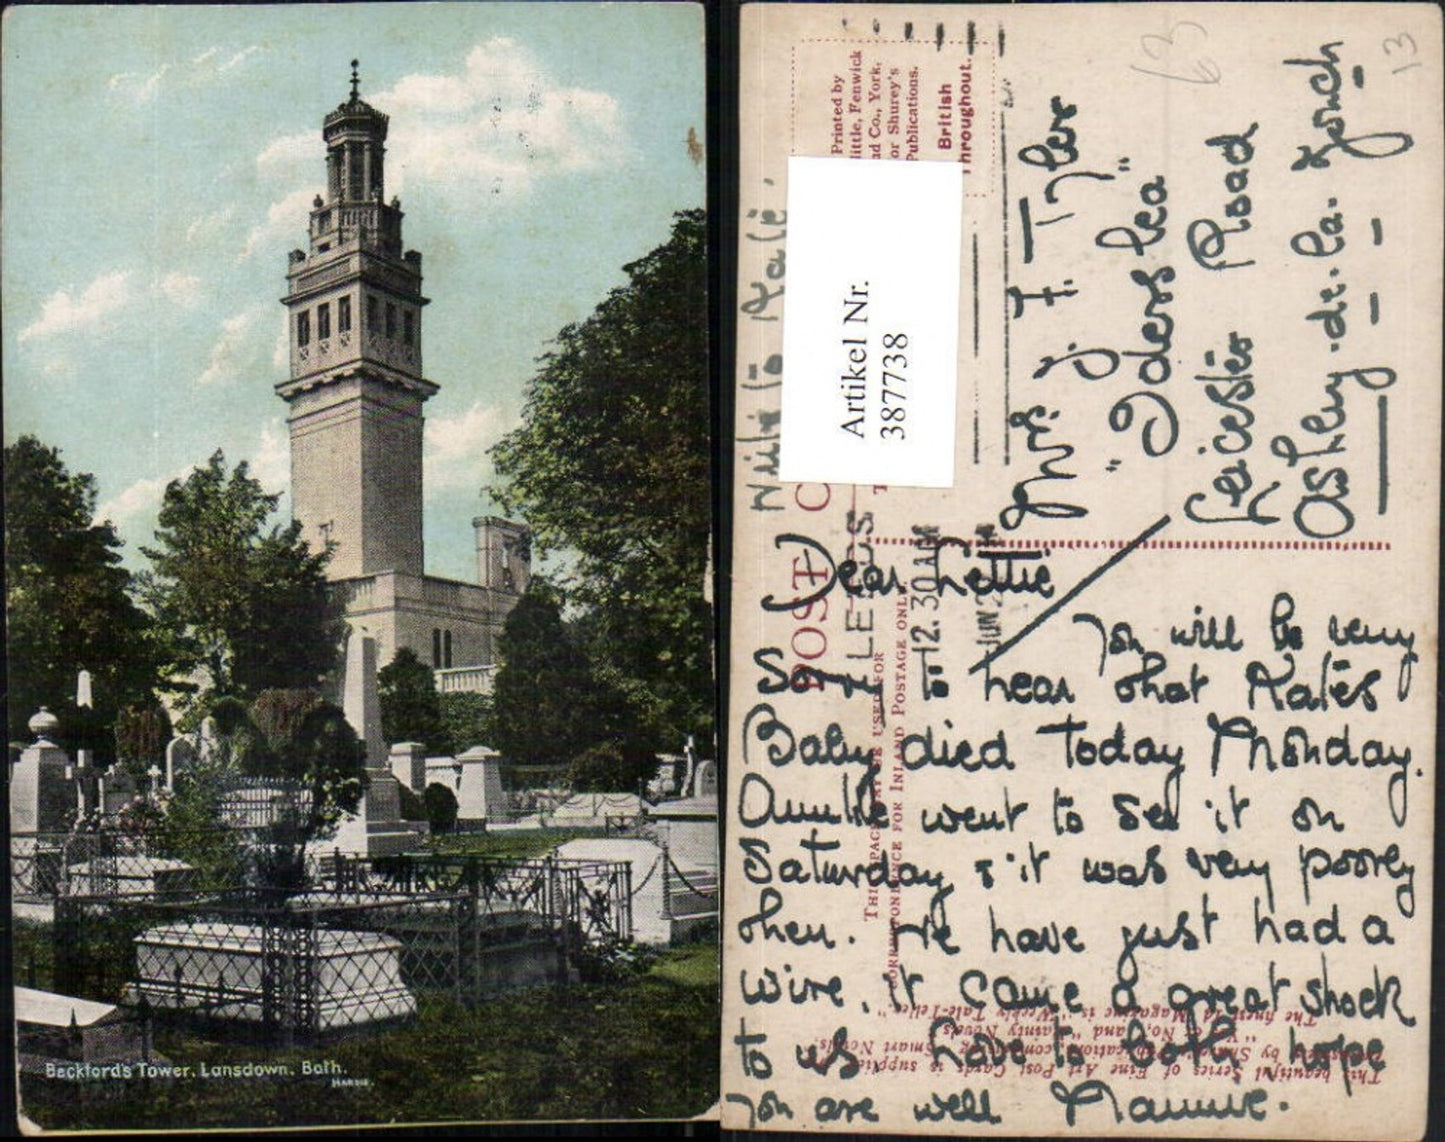 Beckford's Tower, Lansdown, Bath.
HARDIE.
Printed by
little, Fenwick
and Co., York,
or Shurey's
Publications.
British
Throughout.
Artikel Nr.
387738
POST C
LETTERS
12.30 AM
JUN
THIS SPACE MAY BE USED FOR
CORRESPONDENCE FOR INLAND POSTAGE ONLY.
63
13
Mrs. J. T. Tyler
"Iders lea"
Leicester Road
Ashley-de-la-Zouch
Write to Kate.
Dear Lettie
You will be very
Sorry to hear that Kate's
Baby died Today Monday.
Auntie went to see it on
Saturday & it was very poorly
then. We have just had a
wire. it came a great shock
to us, love to both hope
you are well Mamme.
This beautiful Series of Fine Art Post Cards is supplied
by Shurey's Publications, comprising "Smart Novels,"
"Yes or No," and "Dainty Novels,"
The finest 1d. Magazine is "Weekly Tale-Teller."